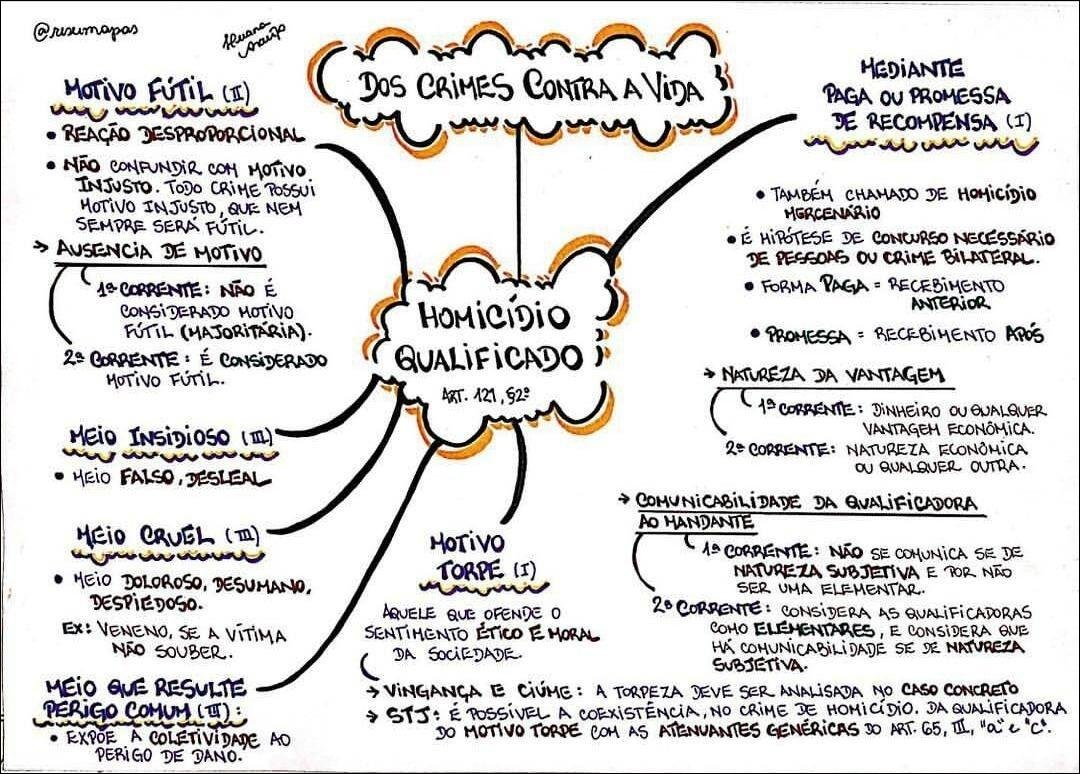 @resumapas
Dos Crimes Contra a Vida
Motivo Fútil (II)
• Reação desproporcional
• Não confundir com motivo
injusto. Todo crime possui
motivo injusto, que nem
sempre será fútil.
→ Ausencia de motivo
1ª corrente: não é
considerado motivo
fútil (majoritária).
2ª corrente: é considerado
motivo fútil.
Meio Insidioso (III)
• Meio falso, desleal
Meio Cruel (III)
• Meio doloroso, desumano,
despiedoso.
Ex: veneno, se a vítima
não souber.
Meio que resulte
perigo comum (III):
• Expõe a coletividade ao
perigo de dano.
Homicídio
Qualificado
Art. 121, §2º
Motivo
Torpe (I)
Aquele que ofende o
sentimento ético e moral
da sociedade.
→ Vingança e ciúme: a torpeza deve ser analisada no caso concreto
→ STJ: é possível a coexistência, no crime de homicídio. da qualificadora
do motivo torpe com as atenuantes genéricas do art. 65, III, "a" e "c".
Mediante
paga ou promessa
de recompensa (I)
• Também chamado de homicídio
mercenário
• É hipótese de concurso necessário
de pessoas ou crime bilateral.
• Forma paga = recebimento
anterior
• Promessa = recebimento após
→ Natureza da vantagem
1ª corrente: dinheiro ou qualquer
vantagem econômica.
2ª corrente: natureza econômica
ou qualquer outra.
→ Comunicabilidade da qualificadora
ao mandante
1ª corrente: não se comunica se de
natureza subjetiva e por não
ser uma elementar.
2ª corrente: considera as qualificadoras
como elementares, e considera que
há comunicabilidade se de natureza
subjetiva.